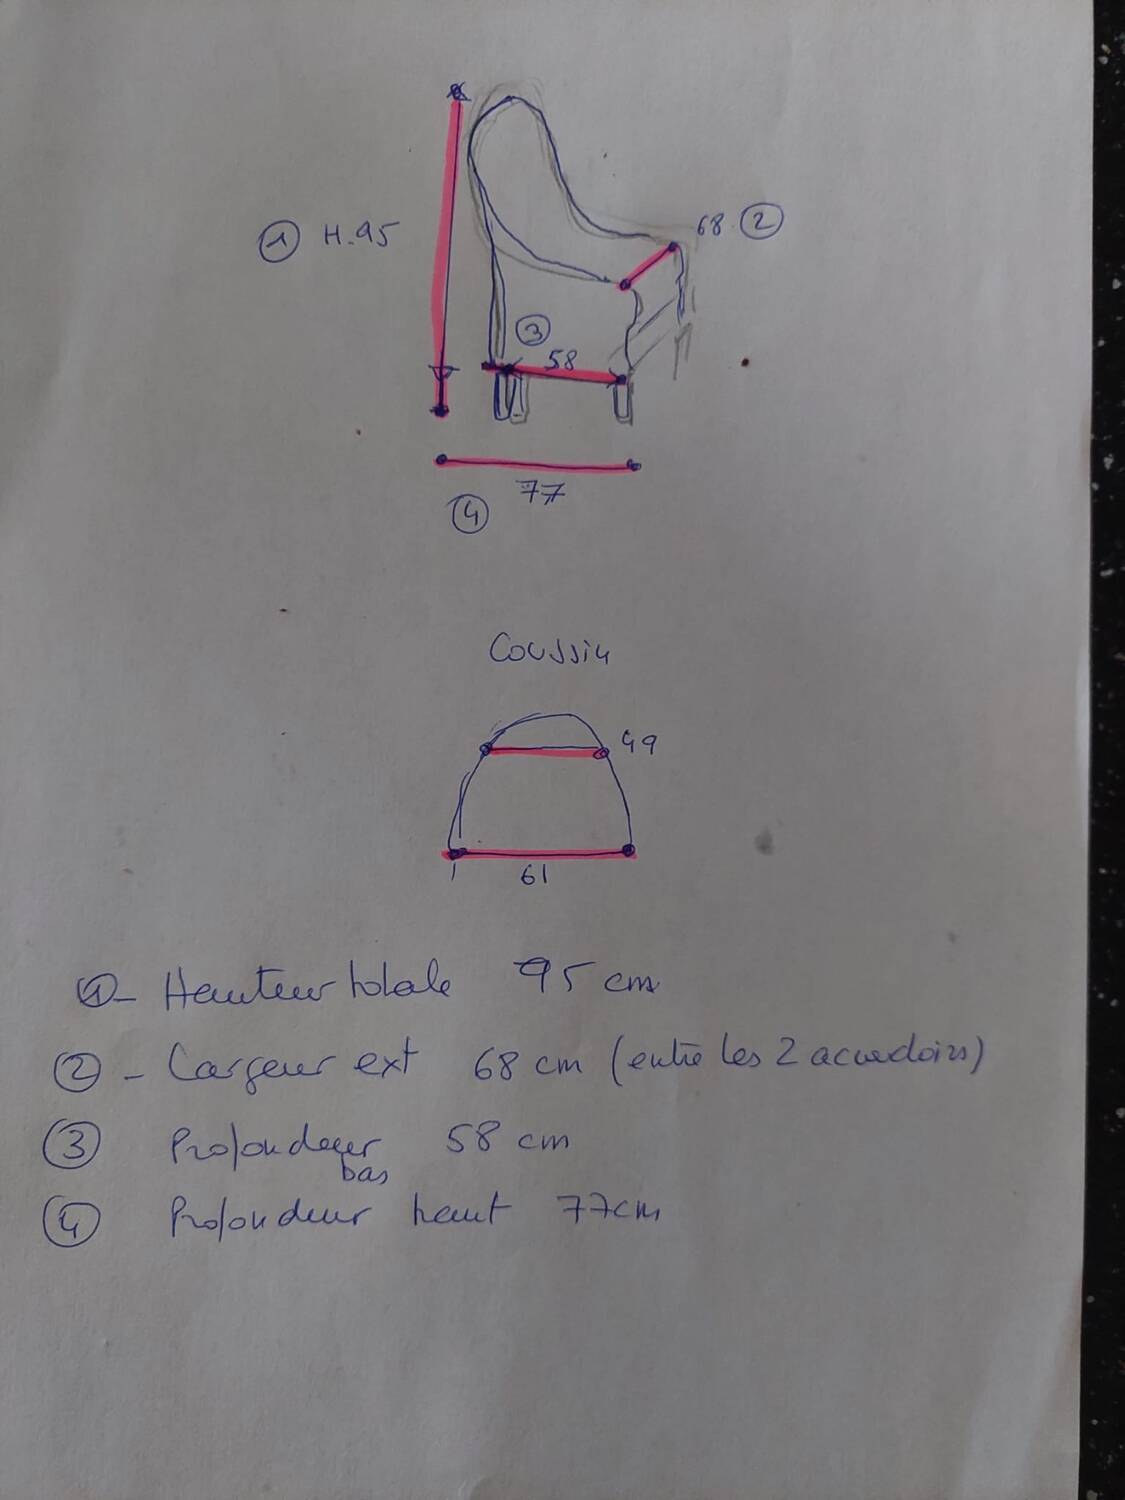 ① H.95
68 ②
③
58
77
④
Coussin
49
61
①- Hauteur totale 95 cm
② - Largeur ext 68 cm (entre les 2 accoudoirs)
③ Profondeur 58 cm
bas
④ Profondeur haut 77cm